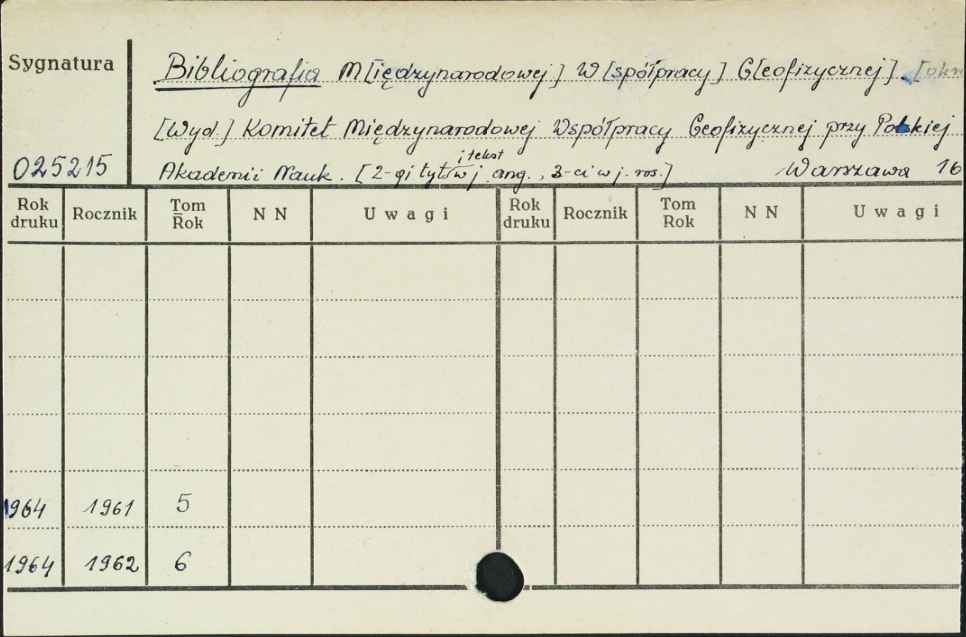 Sygnatura
Bibliografia M[iędzynarodowej] W[spółpracy] G[eofizycznej].
[Wyd.] Komitet Międzynarodowej Współpracy Geofizycznej przy Polskiej
025215
i tekst
Akademii Nauk. [2-gi tytuł w j. ang., 3-ci w j. ros.] Warszawa 16
Rok druku Rocznik Tom Rok N N Uwagi Rok druku Rocznik Tom Rok N N Uwagi
1964 1961 5
1964 1962 6